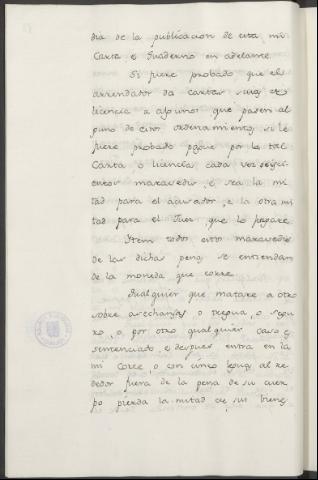 dia de la publicacion de esta mi
Carta e Quaderno en adelante.
Si fuere probado que el
arrendador da cartas suias o
licencia a algunos que pasen al
puno de estos ordenamientos, si le
fuere probado pague por la tal
Carta, o licencia, cada vez seisci-
entos maravedis, e sea la mi
tad para el acusador, e la otra mi
tad para el Juez que lo juzgare
Item todos estos maravedis
de las dichas penas se entiendan
de la moneda que corre.
Qualquier que matare a otro
sobre asechanzas, o tregua, o segu
ro, o por otro qualquier caso e
sentenciado, e despues entra en la
mi Corte, o con cinco leguas al re-
dedor fuera de la pena de su cuer
po pierda la mitad de sus bienes